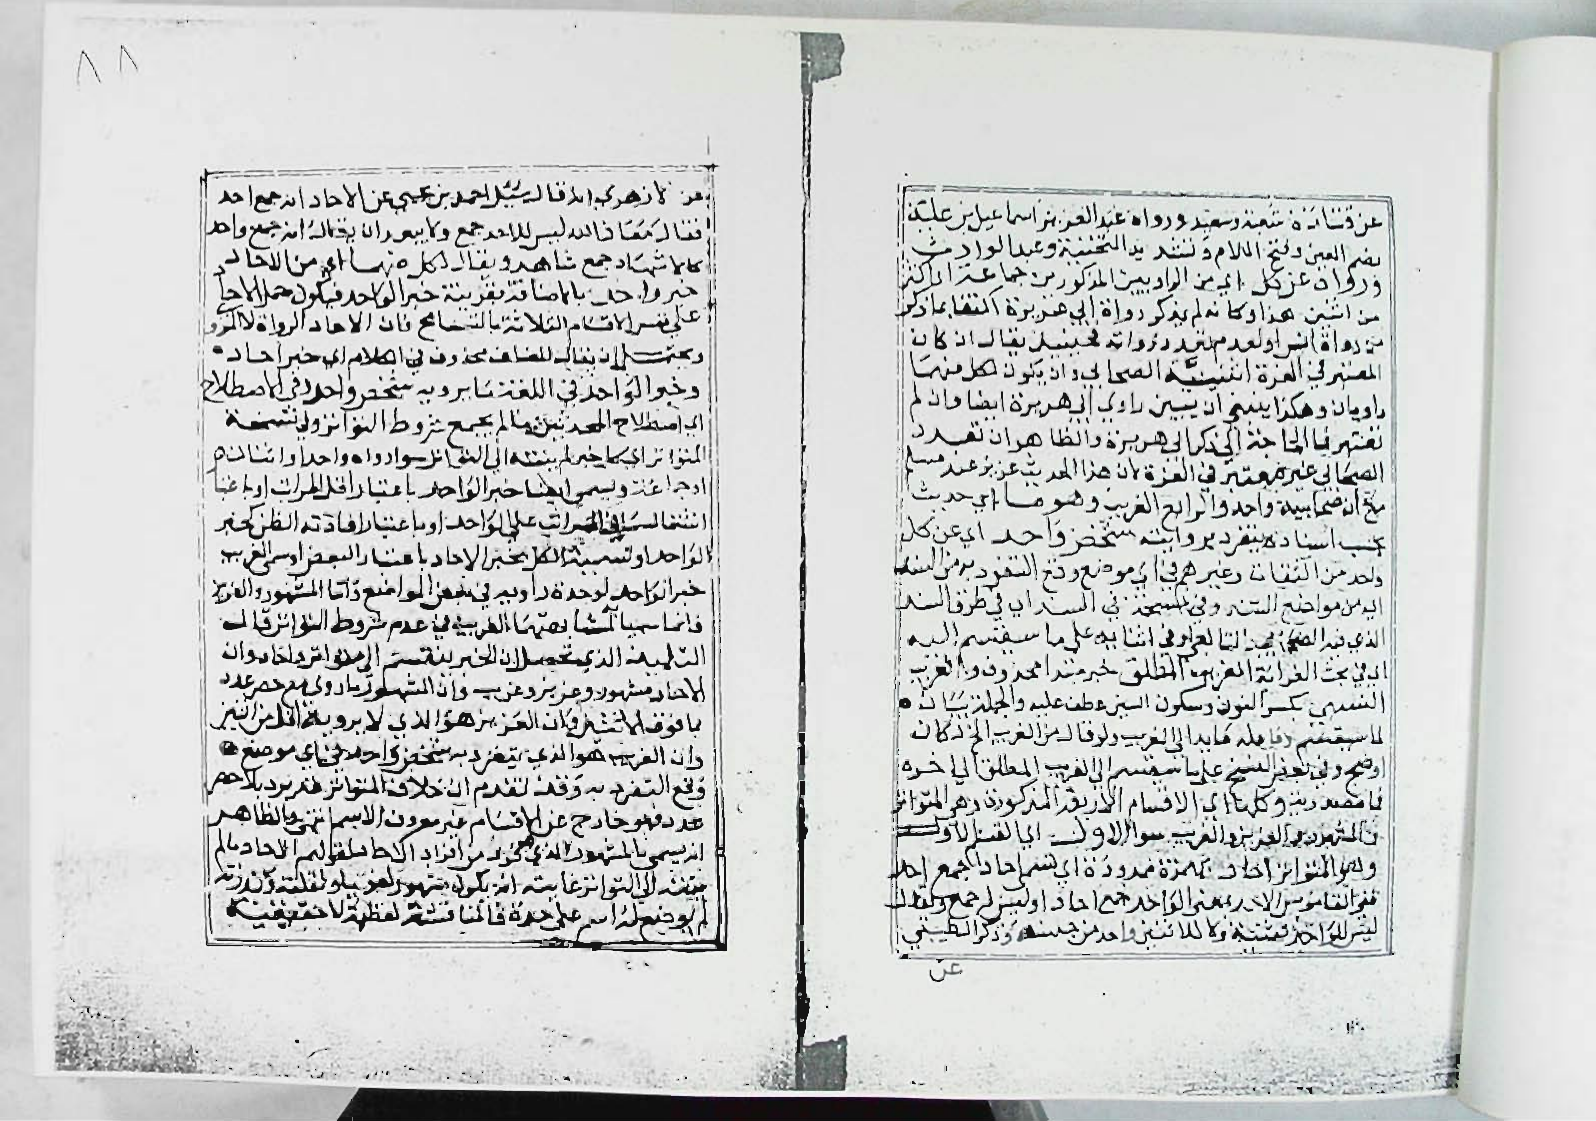 عن قتادة شعبة وسعيد ورواه عبد العزيز اسماعيل بن علية
بضم العين وفتح اللام وتشديد التحتية وعبد الوارث
ورواه عن كل اي من الراويين المذكورين جماعة اي اكثر
من اثنين هذا وكانه لم يذكر رواة ابي هريرة اكتفا بما ذكر
من رواة انس او لعدم تعدد رواته فحينئذ يقال ان كان
المعتبر في العزة اثنينية الصحابي وان يكون لكل منهما
راويان وهكذا ينبغي ان يبين راوي ابي هريرة ايضا وان لم
تعتبر فما الحاجة الى ذكر ابي هريرة والظاهر ان تعدد
الصحابي غير معتبر في العزة لان هذا الحديث عزيز عند مسلم
مع ان صحابيه واحد والرابع الغريب وهو ما اي حديث
بحسب اسناده يتفرد بروايته شخص واحد اي عن كل
واحد من الثقات وغيرهم في اي موضع وقع التفرد به من السند
اي من مواضع السند وفي نسخة في السند اي في طرف السند
الذي فيه الصحابي التابعي او في اثنايه على ما سيقسم اليه
اي في بحث الغرابة الغريب المطلق خبر مبتدا محذوف والغريب
النسبي بكسر النون وسكون السين عطف عليه والجملة بيان
لما سيقسم اليه الغريب ولو قال من الغريب الخ لكان
اوضح وفي بعض النسخ على ما سيقسم الى الغريب المطلق الى اخره
فما مصدرية وكلها اي الاقسام الاربعة المذكورة وهو المتواتر
والمشهور والعزيز والغريب سوى الاول اي القسم الاول
وهو المتواتر احاد بهمزة ممدودة اي تسمى احادا جمع احد
ففي القاموس الاحد بمعنى الواحد جمع احاد او ليس له جمع ويقال
ليس للواحد تثنية ولا للاثنين واحد من جنسه وذكر الطيبي
عن
٨٨
عن الازهري انه قال سئل احمد بن يحيى عن الاحاد انه جمع احد
فقال معاذ الله ليس للاحد جمع ولا يبعد ان يقال انه جمع واحد
كالاشهاد جمع شاهد ويقال لكل منهما اي من الاحاد
خبر واحد بالاضافة بقرينة خبر الواحد فيكون حمل الاحاد
على نفس الاقسام الثلاثة بالتسامح فان الاحاد الرواة لا المروي
ويحتمل ان يقال المضاف محذوف في الكلام اي خبر احاد
وخبر الواحد في اللغة ما يرويه شخص واحد وفي الاصطلاح
اي اصطلاح المحدثين ما لم يجمع شروط التواتر وفي نسخة
المتواتر اي كل خبر لم ينته الى التواتر سوا رواه واحد او اثنان
او جماعة ويسمى ايضا خبر الواحد باعتبار اقل المراتب او باعتبار
الواحد او تسمية الكل بخبر الاحاد باعتبار البعض او سمي الغريب
خبر الواحد لوحدة راويه في بعض المواضع واما المشهور والعزيز
فانما سميا لمشابهتهما الغريب في عدم شروط التواتر قال
التلميذ الذي تحصل ان الخبر ينقسم الى متواتر واحاد وان
الاحاد مشهور وعزيز وغريب وان المشهور ما روي مع حصر عدد
بما فوق الاثنين وان العزيز هو الذي لا يرويه اقل من اثنين
وان الغريب هو الذي يتفرد به شخص واحد في اي موضع
وقع التفرد به وقد تقدم ان خلاف المتواتر قد يرد بلا حصر
عدد فهو خارج عن الاقسام غير معروف الاسم انتهى والظاهر
انه يسمى بالمشهور الذي هو من افراد الاحاد لقولهم الاحاد ما لم
ينته الى التواتر غايته انه يكون مشهورا لغويا ولقلته وندرته
لم يوضع له اسم على حدة فالمناقشة لفظية لا حقيقية